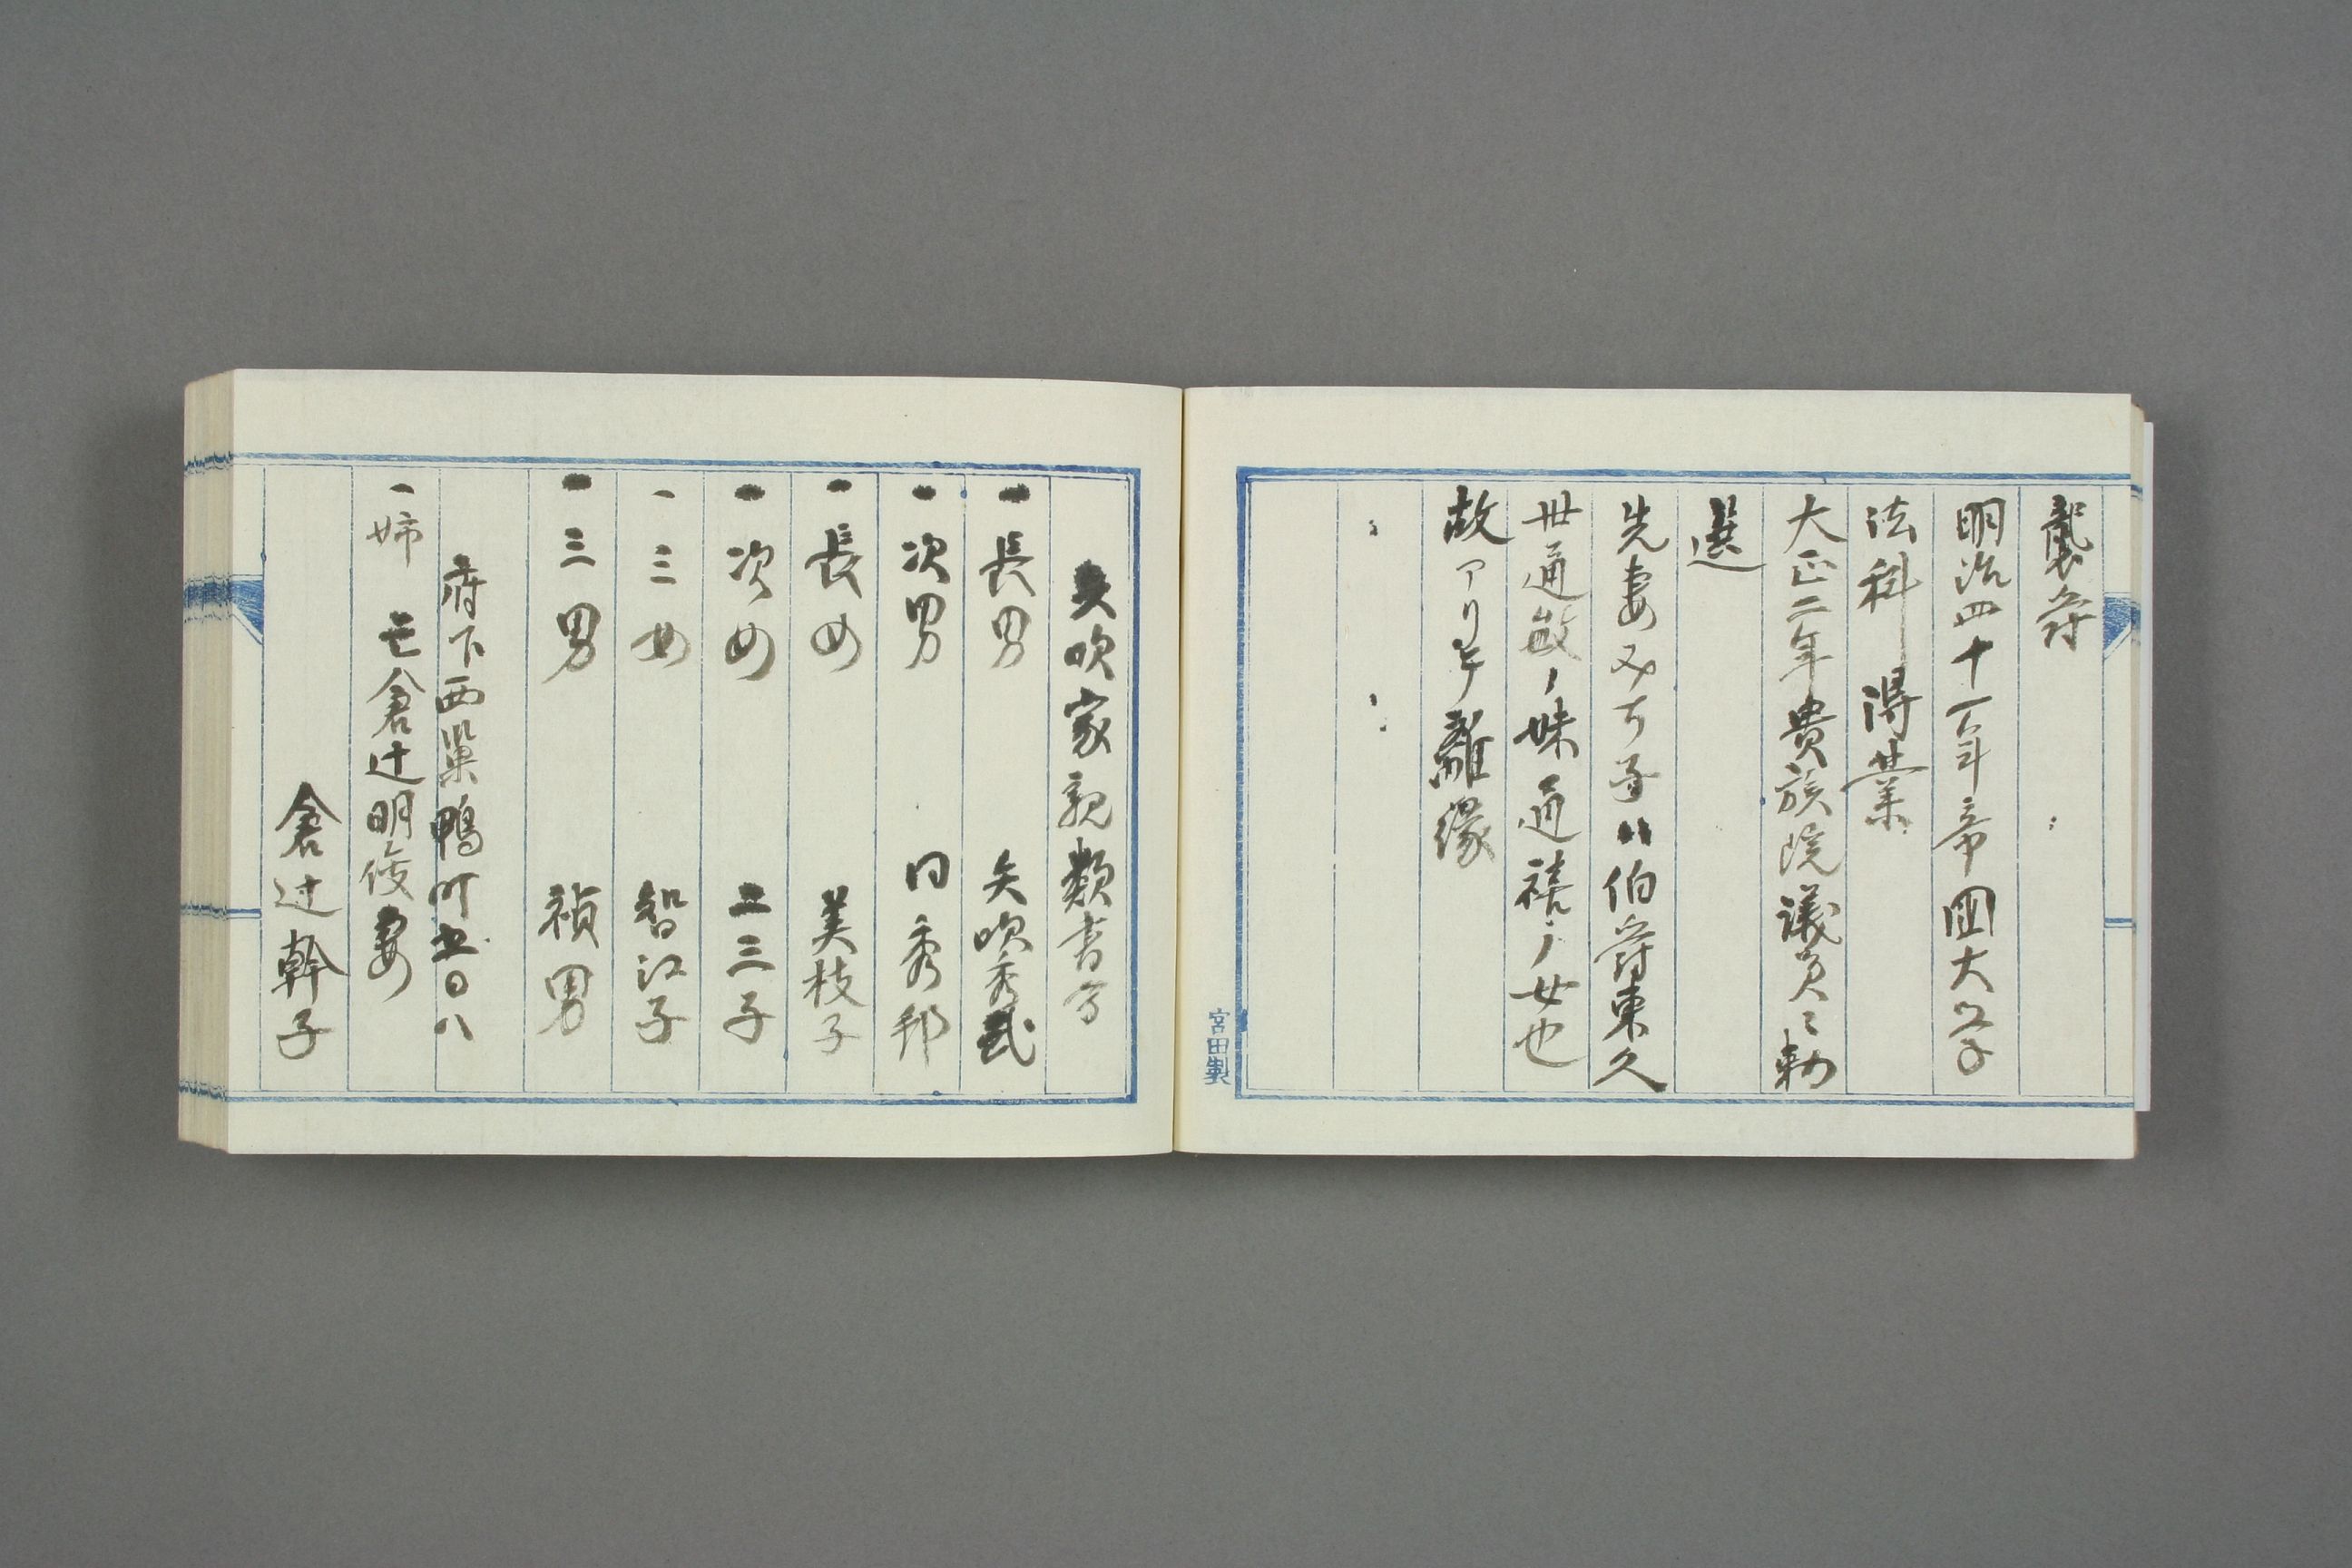 襲爵
明治四十一年帝国大学
法科得業
大正二年貴族院議員ニ勅
選
先妻みち子ハ伯爵東久
世通敏ノ妹通禧ノ女也
故アリテ離縁
宮田製
矢吹家親類書写
一長男 矢吹秀武
一次男 同秀邦
一長女 美枝子
一次女 二三子
一三女 智江子
一三男 禎男
府下西巣鴨町五〇八
一姉 亡倉辻明俊妻
倉辻幹子